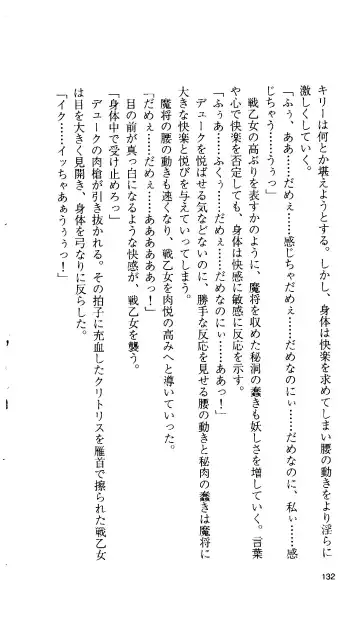 キリーは何とか堪えようとする。しかし、身体は快楽を求めてしまい腰の動きをより淫らに
激しくしていく。
「ふぅ、ああ……だめぇ……感じちゃだめぇ……だめなのにぃ……だめなのに、私ぃ……感
じちゃう……うぅっ」
戦乙女の高ぶりを表すかのように、魔将を収めた秘洞の蠢きも妖しさを増していく。言葉
や心で快楽を否定しても、身体は快感に敏感に反応を示す。
「ふぅあ……ふくぅ……だめぇ……だめなのにぃ……ああっ！」
デュークを悦ばせる気などないのに、勝手な反応を見せる腰の動きと秘肉の蠢きは魔将に
大きな快楽と悦びを与えていってしまう。
魔将の腰の動きも速くなり、戦乙女を肉悦の高みへと導いていった。
「だめぇ……だめぇ……ああああああっ！」
目の前が真っ白になるような快感が、戦乙女を襲う。
「身体中で受け止めろっ」
デュークの肉槍が引き抜かれる。その拍子に充血したクリトリスを雁首で擦られた戦乙女
は目を大きく見開き、身体を弓なりに反らした。
「イク……イッちゃあぁうぅぅっ！」
132